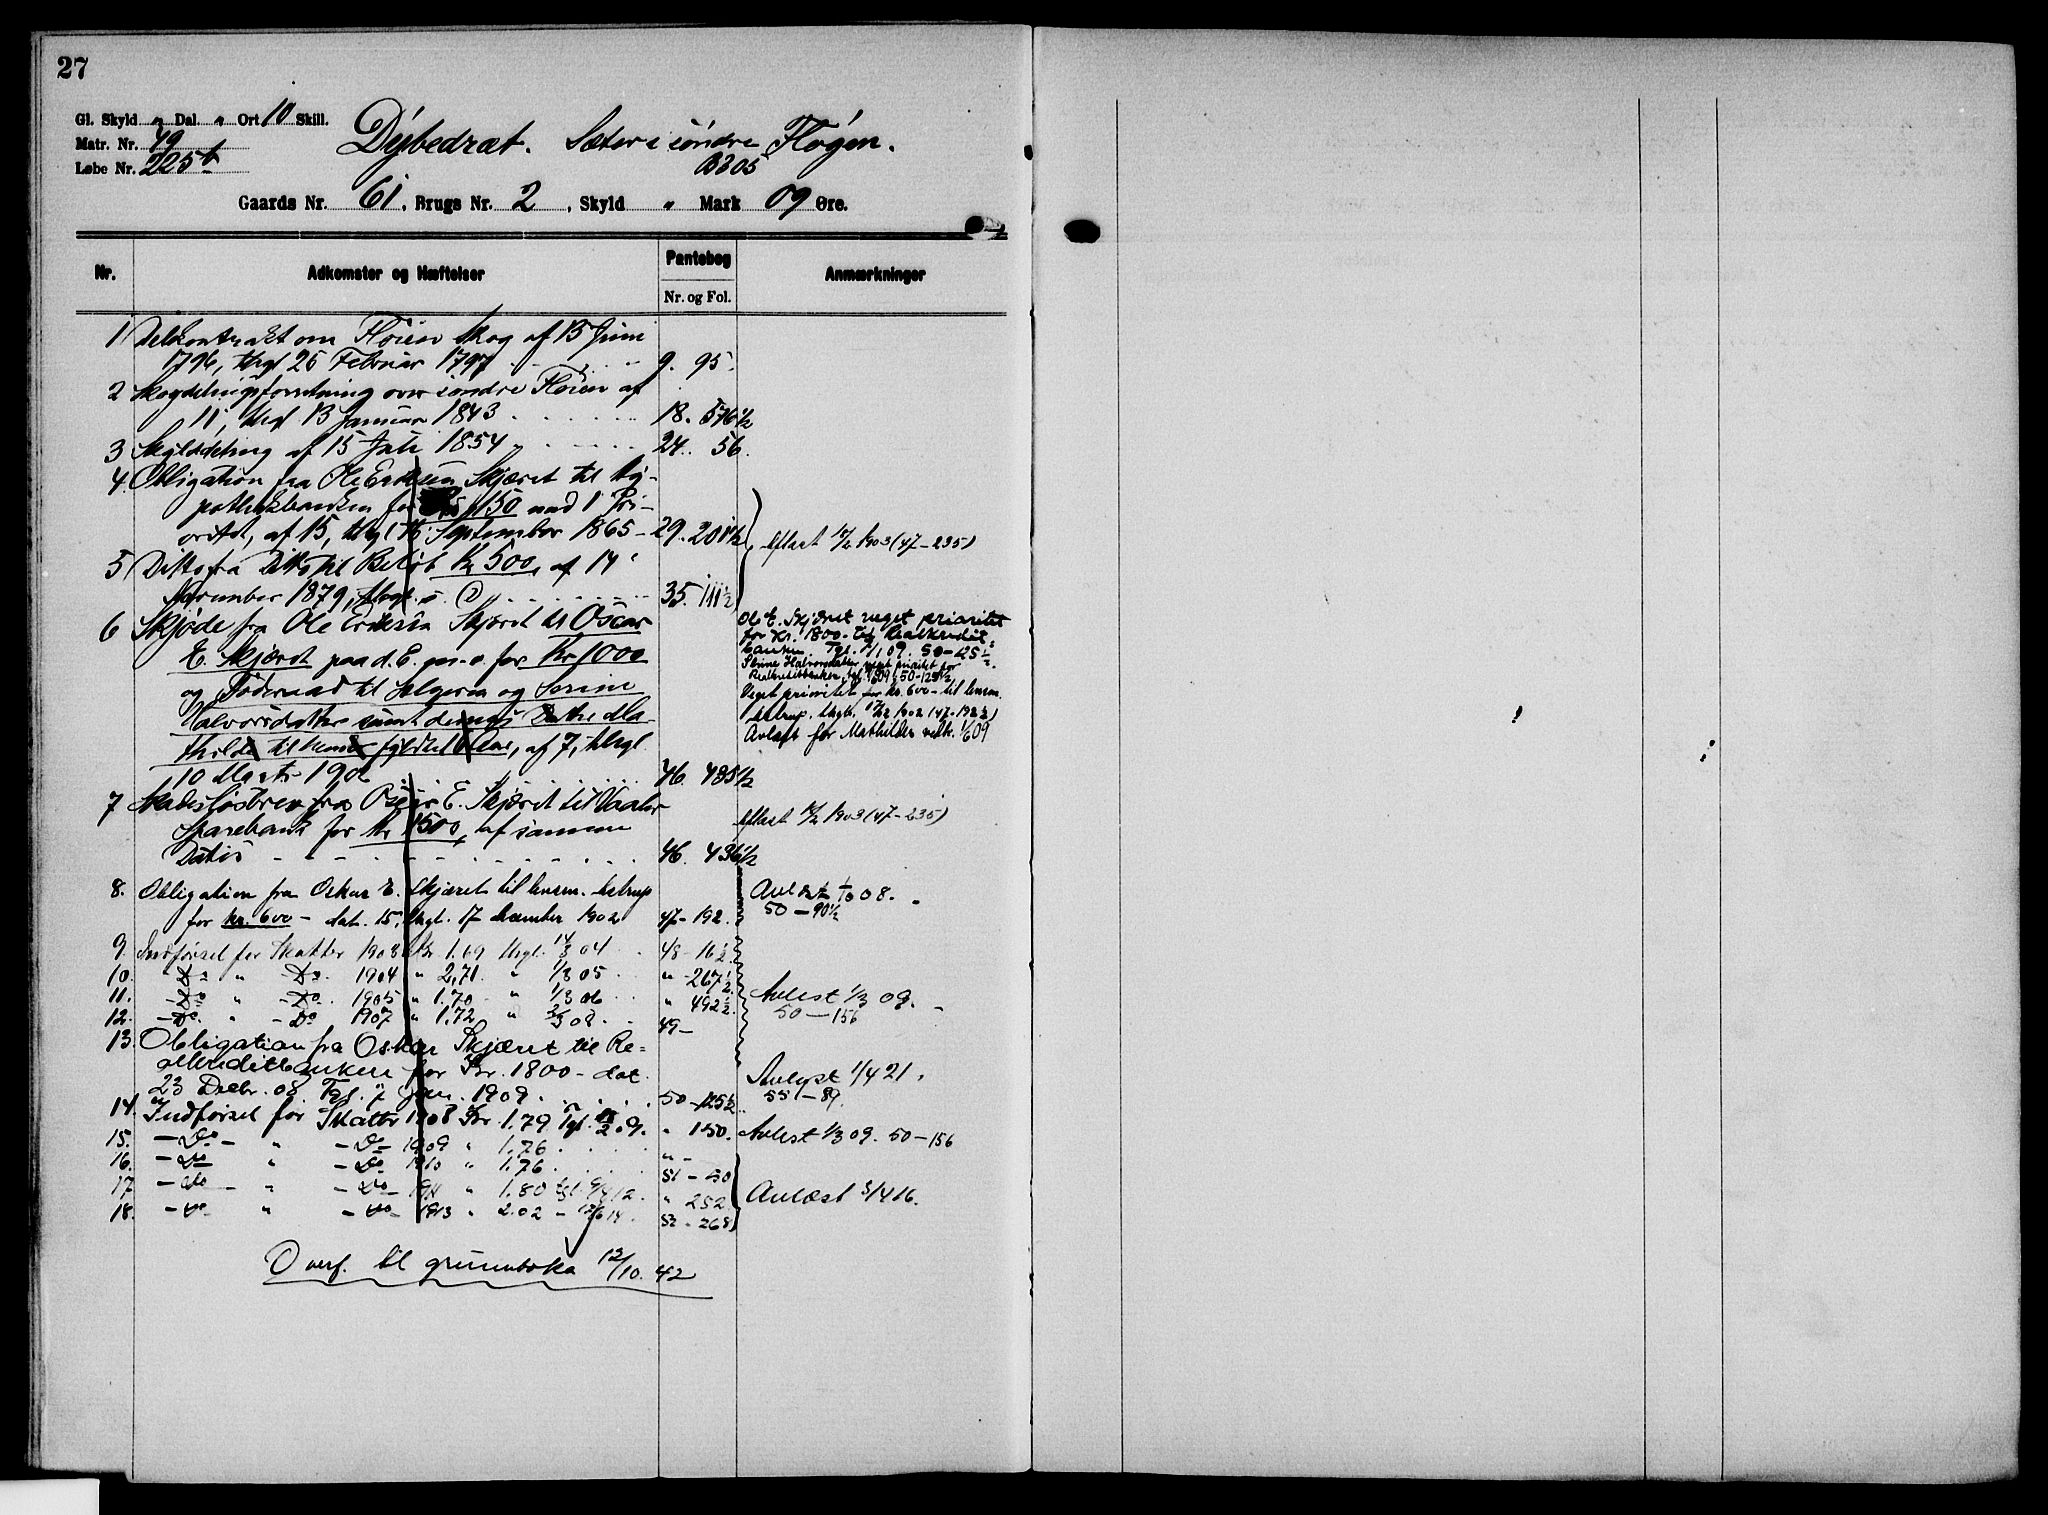 27
Gl. Skyld " Dal. " Ort 10 Skill.
Matr. Nr. 79
Løbe Nr. 225b
Dybedræt. Sæter i søndre Fløgen.
B305
Gaards Nr. 61, Brugs Nr. 2, Skyld " Mark 09 Øre.
Nr. Adkomster og Hæftelser Pantebog Anmærkninger
Nr. og Fol.
1 Delekontrakt om Fløien Skog af 13 Juni
1796, thgl 25 Februar 1797 9. 95.
2 Skogdelingsforretning over søndre Fløien af
11, thgl 13 Januar 1843 18. 576 1/2
3 Skylddeling af 15 Juli 1854 24. 56.
4. Obligation fra Ole Eriksen Skjæret til Hy-
pothekbanken for 150 med 1 Pri-
oritet, af 15, thgl September 1865 - 29. 201 1/2
efläst 1903 (47-235)
5 Ditto fra Ditto til Beløb Kr 500, af 14
November 1879, thgl. s. D 35. 111 1/2
6 Skjøde fra Ole Eriksen Skjæret til Oscar
E. Skjæret paa d. E. m. v. for Kr 1000
og Føderaad til Selgeren og Serine
Halvorsdatter samt dennes Datter Ma-
thilde til hendes fyldte Aar, af 7, thgl
10 Marts 1902 46. 435 1/2
Ole E. Skjæret veget prioritet
for Kr. 1800 - til Realkredit-
banken. Tgl. 7/1 09. 50-125 1/2.
Serine Halvorsdatter veget prioritet for
Realkreditbanken, tgl. 7/1 09, 50-125 1/2
Veget prioritet for kr. 600 - til lensm.
Astrup. thgl. 17/12 1902 (47-192 1/2)
Avlæst for Mathildes vedk. 1/6 09
7 Skadesløsbrev fra Oscar E. Skjæret til Vaaler
Sparebank for Kr 1500, af samme
Datis 46. 436 1/2
efläst 1903 (47-235)
8. Obligation fra Oskar E. Skjæret til lensm. Astrup
for kr. 600 - dat. 15, thgl. 17 december 1902 47-192.
Avlæst 1/10 08.
50-90 1/2
9. Indførsel for Skatter 1903 Kr 1.69 thgl. 14/3 04 48-16 1/2.
10. -Do " -Do. 1904 " 2,71. " 1/3 05 " -267 1/2.
11. -Do " -Do. 1905 " 1.70 - " 1/3 06 " 492 1/2.
12. -Do. " -Do 1907 " 1.72 " 3/3 08. 49-
Avlest 1/3 09.
50-156
13. Obligation fra Oskar Skjæret til Re-
alkreditbanken for Kr. 1800 - dat.
23 Decbr. 08. Tgl. 7 Jan. 1909. 50-125 1/2
Avlyst 1/4 21.
55-89.
14. Indførsel for Skatter 1908 Kr. 1.79 Tgl. 09. " 150.
Avlest 1/3 09. 50-156
15. -Do- " -Do- 1909 " 1.76 " -
16. -Do " -Do 1910 " 1.76 51-50
17. -Do- " -Do- 1911 " 1.80 tgl. 12. " 252
18. -Do- " -Do- 1913 " 2.02 - 12/6 14. 52-268
Avlæst 3/4 16.
Overf. til grunnboka 12/10. 42